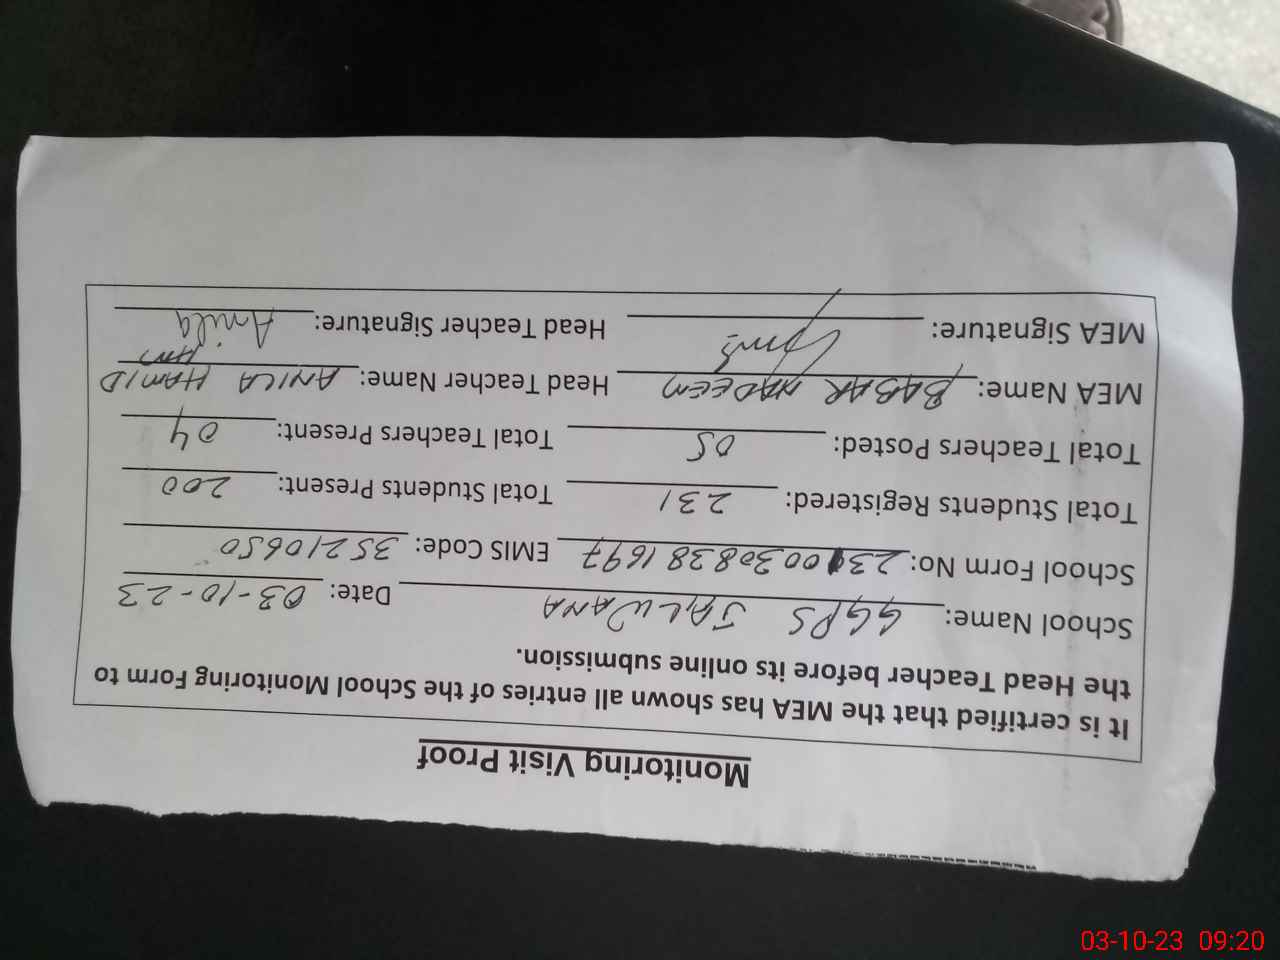 Monitoring Visit Proof
It is certified that the MEA has shown all entries of the School Monitoring Form to
the Head Teacher before its online submission.
School Name: GGPS JALWANA Date: 03-10-23
School Form No: 23100308381697 EMIS Code: 35210650
Total Students Registered: 231 Total Students Present: 200
Total Teachers Posted: 05 Total Teachers Present: 04
MEA Name: BABAR NADEEM Head Teacher Name: ANILA HAMID
MEA Signature: Head Teacher Signature: Anila
03-10-23 09:20